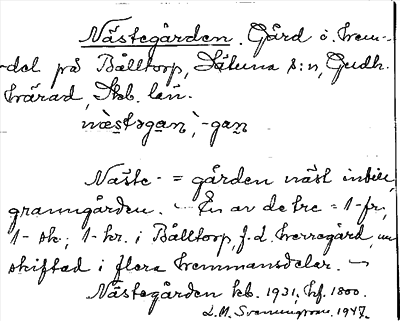 Nästegården. Gård o. hem-
-del på Bålltorp, Sätuna s:n, Gudh.
härad, Skb. län.
næstəgan, -gan
Näste- = gården näst intill
granngården. - En av de tre = 1-fr,
1- sk; 1-kr. i Bålltorp, f.d. herregård,
skiftad i flera hemmansdelar. -
Nästegården kb. 1931, hf. 1800.
L.M. Svenungson. 1947.